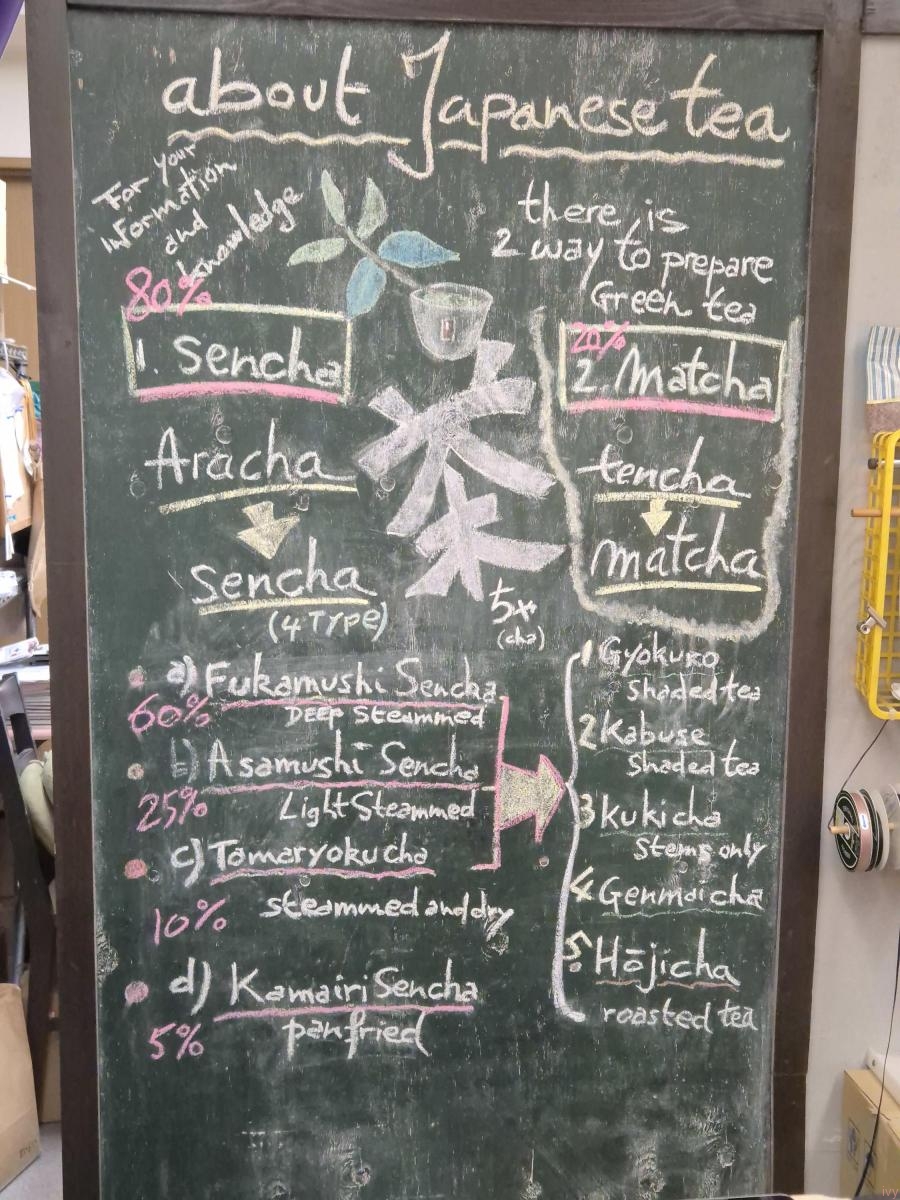 about Japanese tea
For your
Information
and
knowledge
there is
2 way to prepare
Green tea
80%
1. Sencha
Aracha
Sencha
(4 TYPE)
茶
5*
(cha)
20%
2. Matcha
tencha
matcha
a) Fukamushi Sencha
60%
DEEP Steammed
b) Asamushi Sencha
25%
Light Steammed
c) Tamaryokucha
10%
steammed and dry
d) Kamairi Sencha
5%
panfried
1 Gyokuro
Shaded tea
2 Kabuse
Shaded tea
3 Kukicha
Stems only
4 Genmaicha
5. Hōjicha
roasted tea
ivy